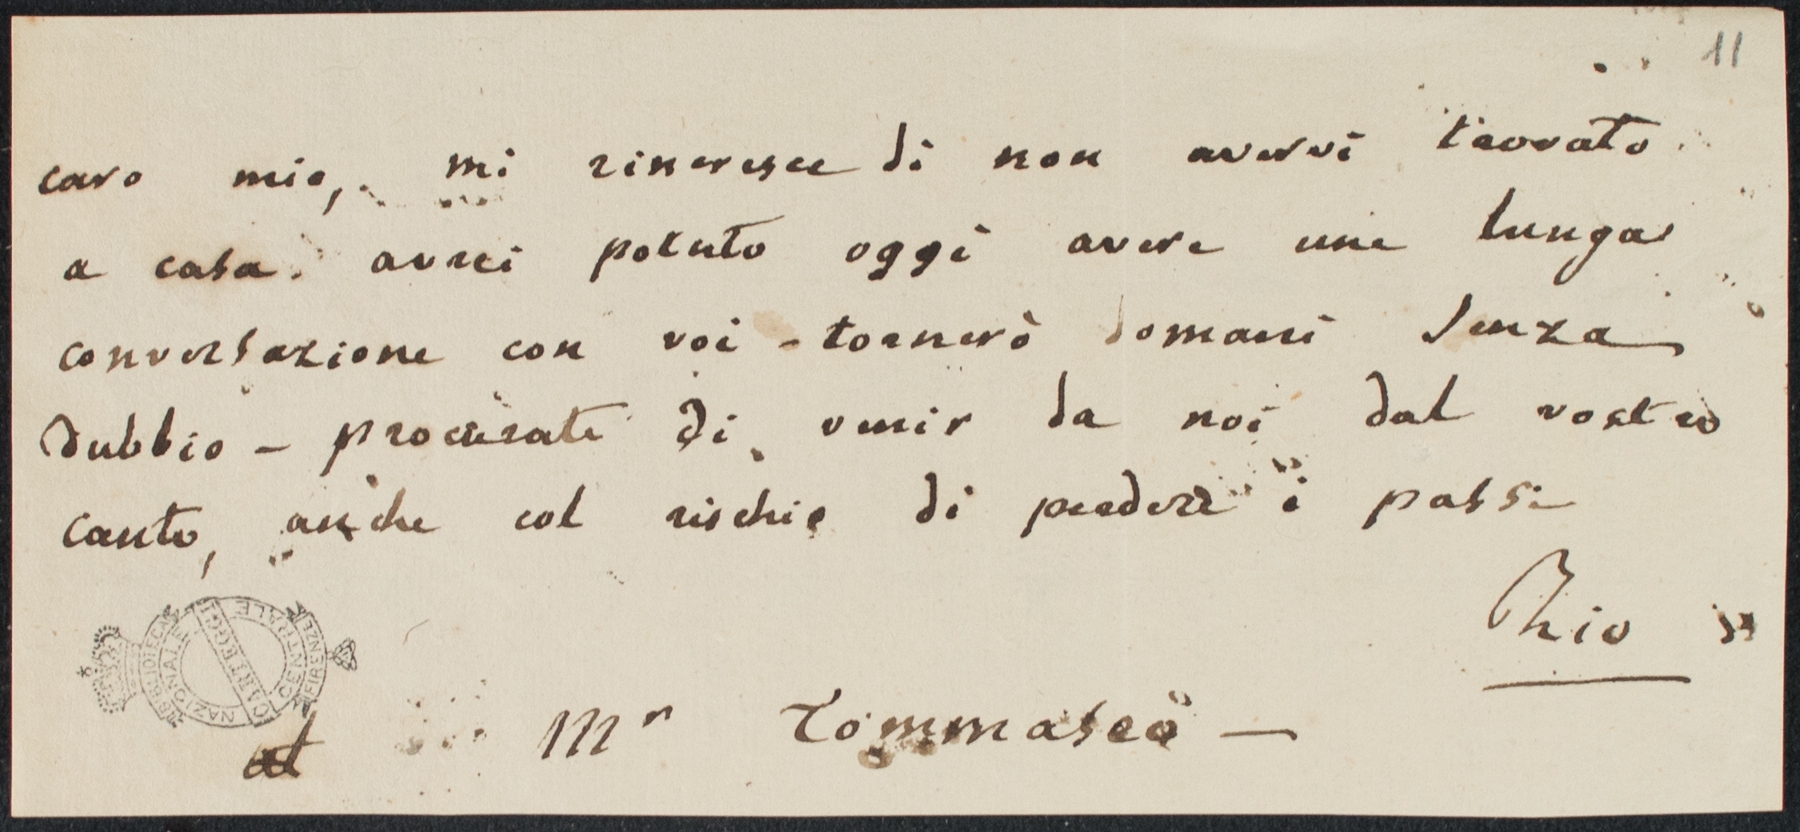 11
caro mio, mi rincresce di non avervi trovato
a casa. avrei potuto oggi avere une lunga
conversazione con voi - tornerò domani senza
dubbio - procurate di venir da noi dal vostro
canto, anche col rischio di perdere i passi
Rio
BIBLIOTECA NAZIONALE CENTRALE FIRENZE
CARTEGGI
al Mr Tommaseo -